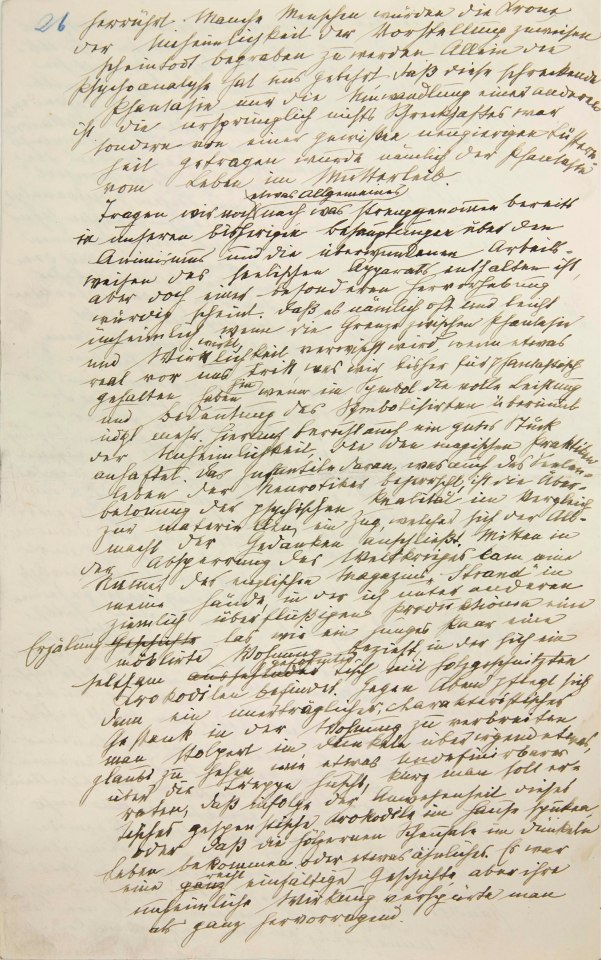 26 herrührt. Manche Menschen würden die Krone
der Unheimlichkeit der Vorstellung zuweisen
scheintodt begraben zu werden Allein die
Psychoanalyse hat uns gelehrt daß diese schreckende
Phantasie nur die Umwandlung einer anderen
ist die ursprünglich nichts Schreckhaftes war
sondern von einer gewissen neugierigen Lüstern-
heit getragen wurde nämlich der Phantasie
vom Leben im Mutterleib.
etwas Allgemeines
Tragen wir noch nach was strenggenommen bereits
in unseren bisherigen Behauptungen über den
Animismus und die überwundenen Arbeits-
weisen des seelischen Apparats enthalten ist,
aber doch einer besonderen Hervorhebung
würdig scheint. daß es nämlich oft und leicht
unheimlich wenn die Grenze zwischen Phantasie
wirkt
und Wirklichkeit verwischt wird, wenn etwas
real vor uns tritt was wir bisher für phantastisch
gehalten haben wenn ein Symbol die volle Leistung
und Bedeutung des Symbolisirten übernimt
udgl mehr. Hierauf beruht auch ein gutes Stück
der Unheimlichkeit, die den magischen Praktiken
anhaftet. Das Infantile daran, was auch das Seelen-
leben der Neurotiker beherrscht, ist die Über-
betonung der psychischen Realität im Vergleich
zur materiellen, ein Zug, welcher sich der All-
macht der Gedanken anschließt. Mitten in
der Absperrung des Weltkrieges kam eine
Numer des englischen Magazins „Strand“ in
meine Hände, in der ich unter anderen
ziemlich überflüßigen Produktionen eine
Erzälung Geschichte las wie ein junges Paar eine
möblirte Wohnung bezieht, in der sich ein
geformter
seltsam Tisch mit holzgeschnitzten
Krokodilen befindet. Gegen Abend pflegt sich
dann ein unerträglicher, charakteristischer
Gestank in der Wohnung zu verbreiten
man stolpert im Dunkeln über irgendetwas,
glaubt zu sehen wie etwas undefinirbares
über die Treppe huscht, kurz man soll er-
raten, daß infolge der Anwesenheit dieses
Tisches gespenstische Krokodile im Hause spuken,
oder daß die hölzernen Scheusale im Dunkeln
Leben bekommen oder etwas ähnliches. Es war
recht
eine ganz einfältige Geschichte, aber ihre
unheimliche Wirkung verspürte man
als ganz hervorragend.